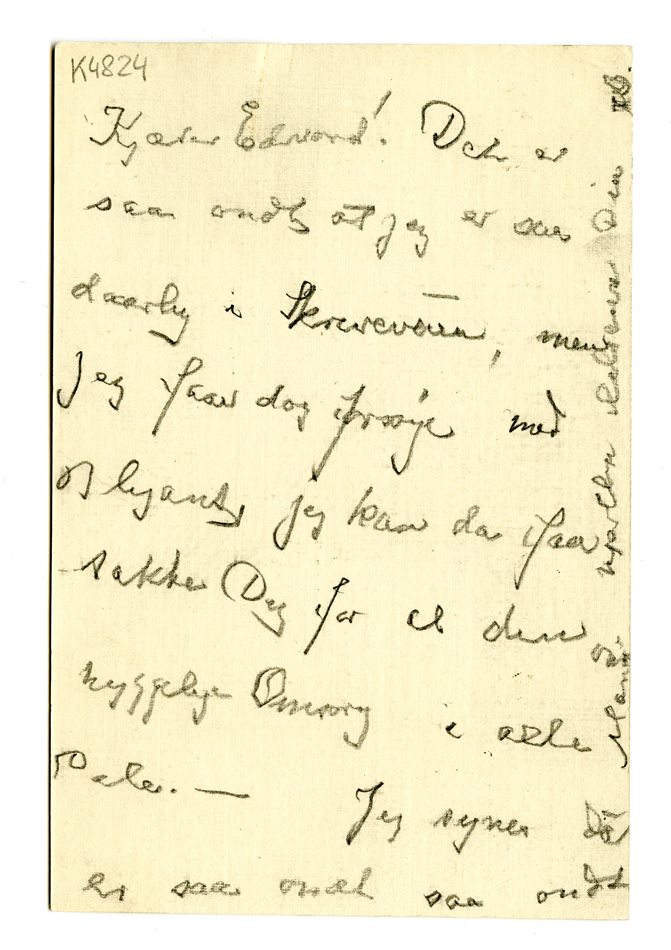 K4824
Kjære Edvard! Det er
saa ondt at jeg er saa
daarlig i Skriveveien, men
jeg faar dog forsøge med
Blyant, jeg kan da faa
takke Dig for al din
hyggelige Omsorg i alle
Dele. — Jeg synes då
er saa ondt saa ondt
hjælpe Din